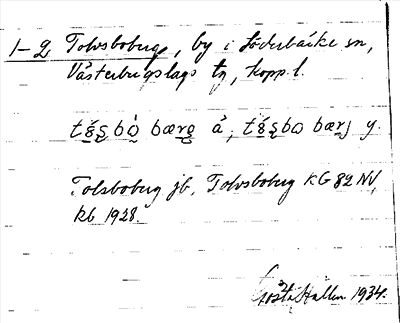 1-2 Tolvsboberg, by i Söderbärke sn,
Västerbergslags tg, kopp. l.
tɷ̄s̨bò bærg å, tɷ̄s̨bo bærj y.
Tolsboberg jb, Tolvsboberg KG 82 NV,
kb 1928.
Gösta Hallén 1934.